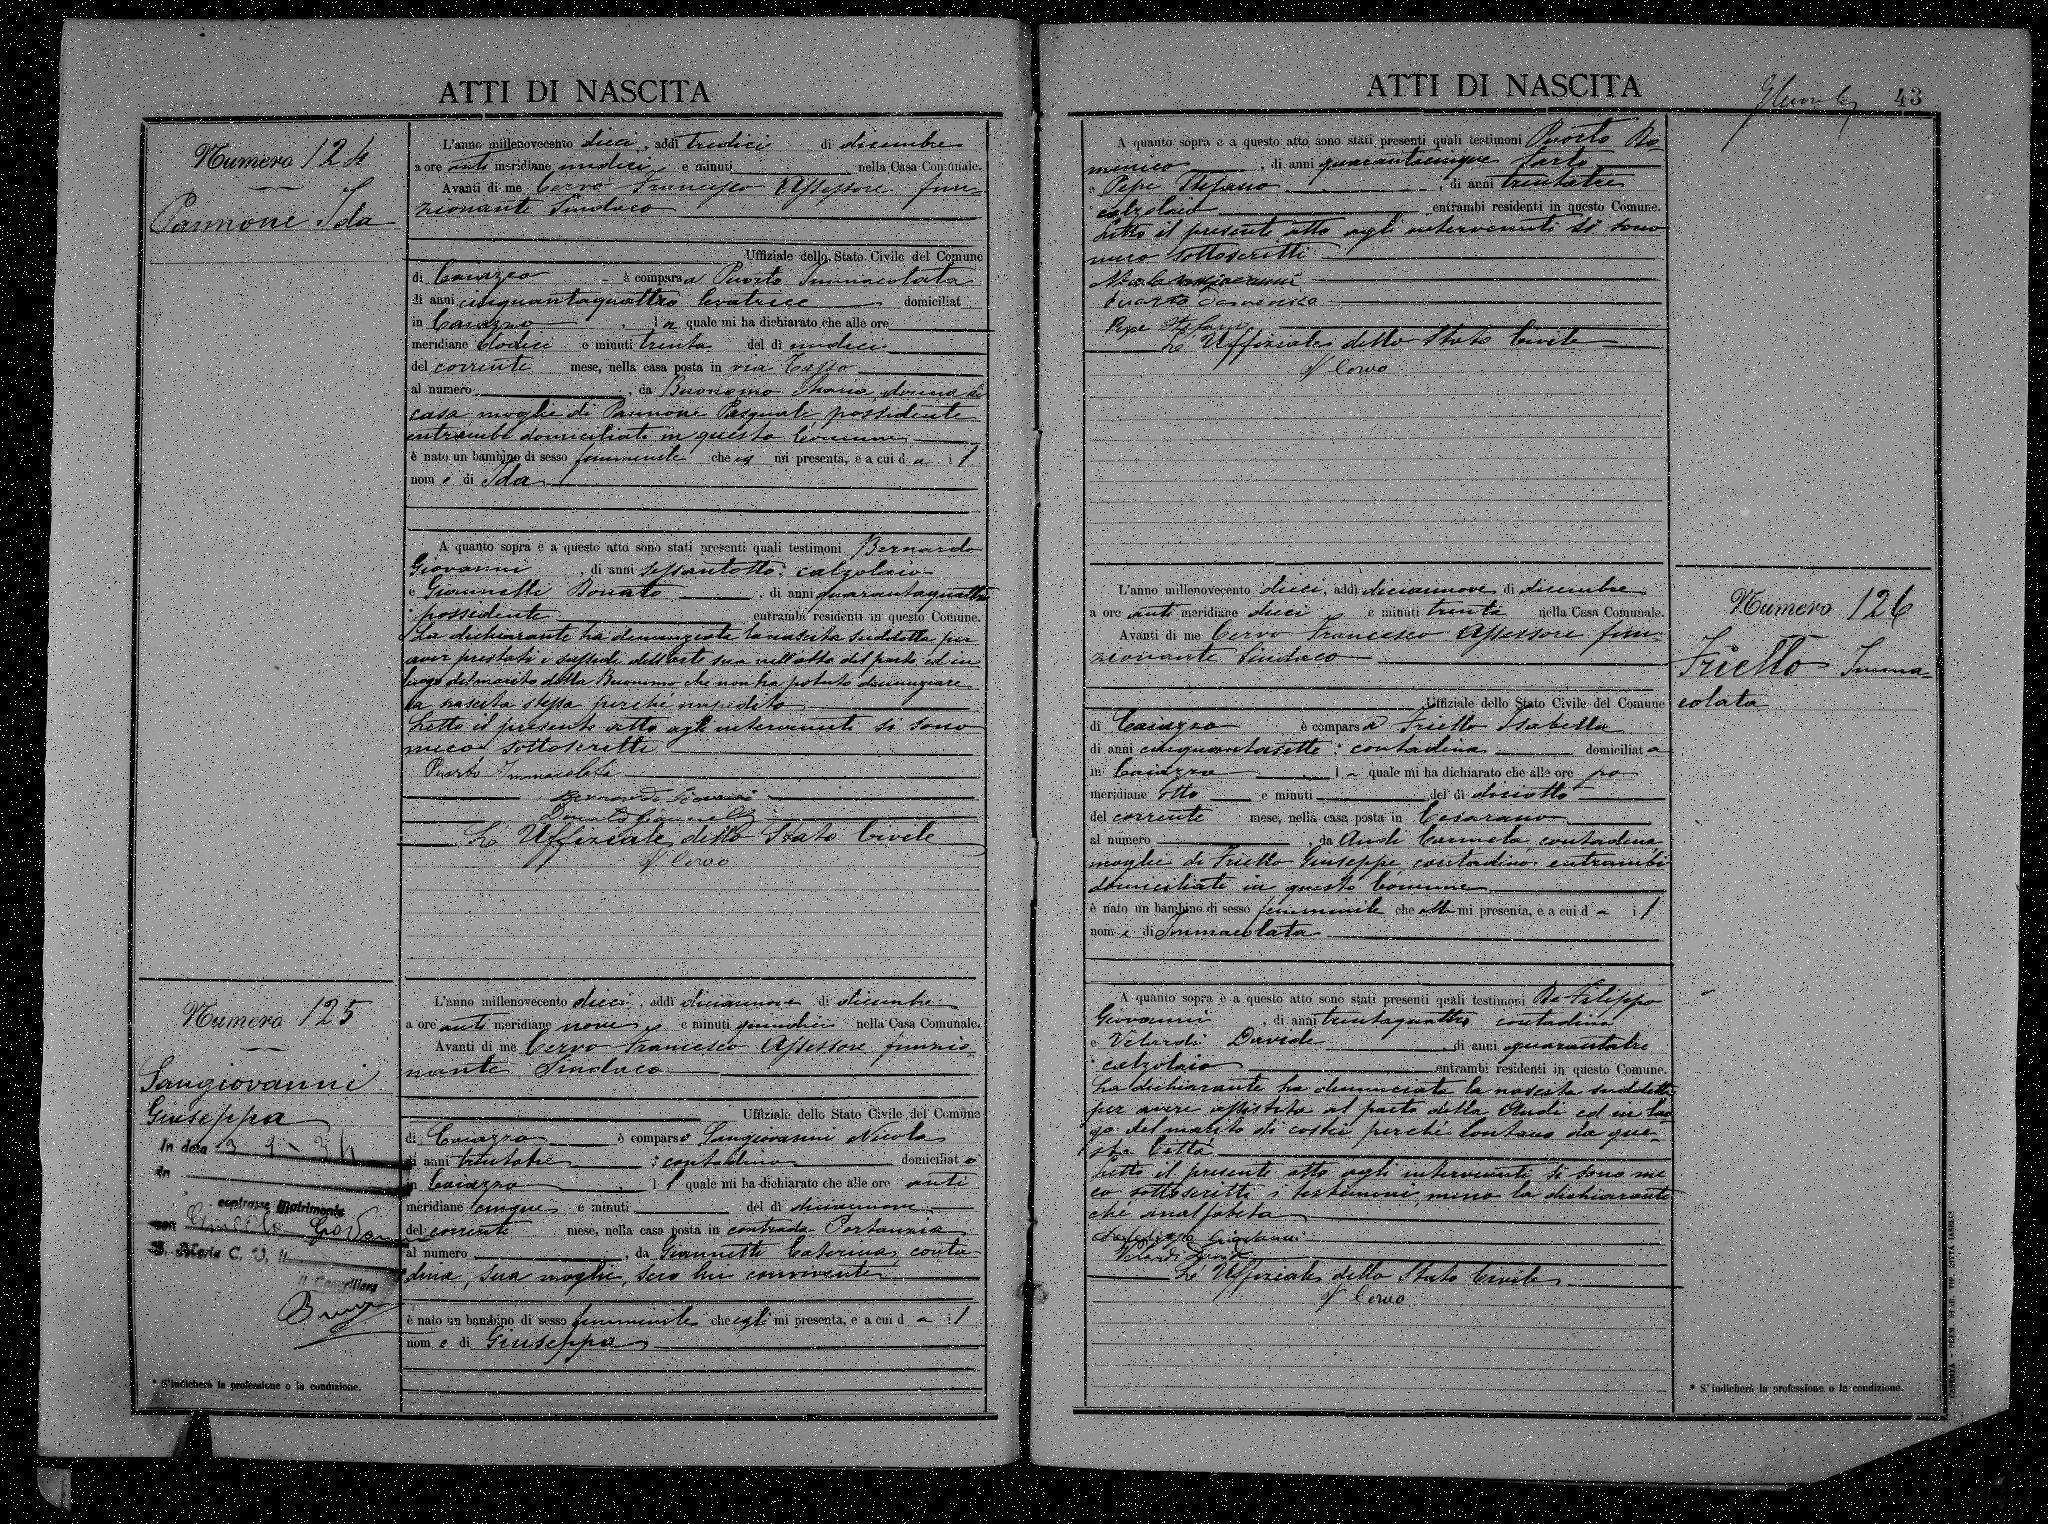 ATTI DI NASCITA
Numero 124
Pannone Ida
L'anno millenovecento dieci, addì tredici di dicembre
a ore anti meridiane undici e minuti nella Casa Comunale.
Avanti di me Cervo Francesco Assessore fun-
zionante Sindaco
Uffiziale dello Stato Civile del Comune
di Caiazzo è comparsa Puorto Immacolata
di anni cinquantaquattro levatrice domiciliat
in Caiazzo, la quale mi ha dichiarato che alle ore
meridiane dodici e minuti trenta del dì undici
del corrente mese, nella casa posta in via Tasso
al numero, da Buonomo Maria donna di
casa moglie di Pannone Pasquale possidente
entrambi domiciliati in questo Comune
è nato un bambino di sesso femminile che mi presenta, e a cui da il
nome di Ida
A quanto sopra e a questo atto sono stati presenti quali testimoni Bernardo
Giovanni, di anni sessantotto, calzolaio
e Giannelli Donato, di anni quarantaquattro
possidente entrambi residenti in questo Comune.
La dichiarante ha denunciato la nascita suddetta per
aver prestati i sussidi dell'arte sua nell'atto del parto ed in
luogo del marito della Buonomo che non ha potuto denunciare
la nascita stessa perché impedito
Letto il presente atto agli intervenuti si sono
meco sottoscritti
Puorto Immacolata
Bernardo Giovanni
Donato Giannelli
L'Uffiziale dello Stato Civile
F Cervo
Numero 125
Sangiovanni
Giuseppa
In data
in
contrasse matrimonio
con
S. Maria C. V. li
L'anno millenovecento dieci, addì diciannove di dicembre
a ore anti meridiane nove e minuti quindici nella Casa Comunale.
Avanti di me Cervo Francesco Assessore funzio
nante Sindaco
Uffiziale dello Stato Civile del Comune
di Caiazzo è comparso Sangiovanni Nicola
di anni trentatre, contadino domiciliato
in Caiazzo, il quale mi ha dichiarato che alle ore anti
meridiane cinque e minuti del dì diciannove
del corrente mese, nella casa posta in contrada Portanzia
al numero, da Giannetti Caterina, conta
dina, sua moglie, seco lui convivente
è nato un bambino di sesso femminile che egli mi presenta, e a cui da il
nome di Giuseppa
* S'indicherà la professione o la condizione.
ATTI DI NASCITA
43
A quanto sopra e a questo atto sono stati presenti quali testimoni Puorto Do
menico, di anni quarantacinque sarto
e Pepe Stefano, di anni trentatre
calzolaio entrambi residenti in questo Comune.
Letto il presente atto agli intervenuti si sono
meco sottoscritti
Nicola Sangiovanni
Puorto Domenico
Pepe Stefano
L'Uffiziale dello Stato Civile
F Cervo
L'anno millenovecento dieci, addì diciannove di dicembre
a ore anti meridiane dieci e minuti trenta nella Casa Comunale.
Avanti di me Cervo Francesco Assessore fun-
zionante Sindaco
Uffiziale dello Stato Civile del Comune
di Caiazzo è comparsa Friello Isabella
di anni cinquantasette, contadina domiciliata
in Caiazzo, la quale mi ha dichiarato che alle ore po
meridiane otto e minuti del dì diciotto
del corrente mese, nella casa posta in Cesarano
al numero, da Audi Carmela contadina
moglie di Friello Giuseppe contadino entrambi
domiciliati in questo Comune
è nato un bambino di sesso femminile che ella mi presenta, e a cui da il
nome di Immacolata
A quanto sopra e a questo atto sono stati presenti quali testimoni De Filippo
Giovanni, di anni trentaquattro contadino
e Velardi Davide di anni quarantatre
calzolaio entrambi residenti in questo Comune.
La dichiarante ha denunciato la nascita suddetta
per avere assistito al parto della Audi ed in luo
go del marito di costei perché lontano da que-
sta Città
Letto il presente atto agli intervenuti si sono me
co sottoscritti i testimoni, meno la dichiarante
che analfabeta
De Filippo Giovanni
Velardi Davide
L'Uffiziale dello Stato Civile
F Cervo
Numero 126
Friello Imma-
colata
* S'indicherà la professione o la condizione.